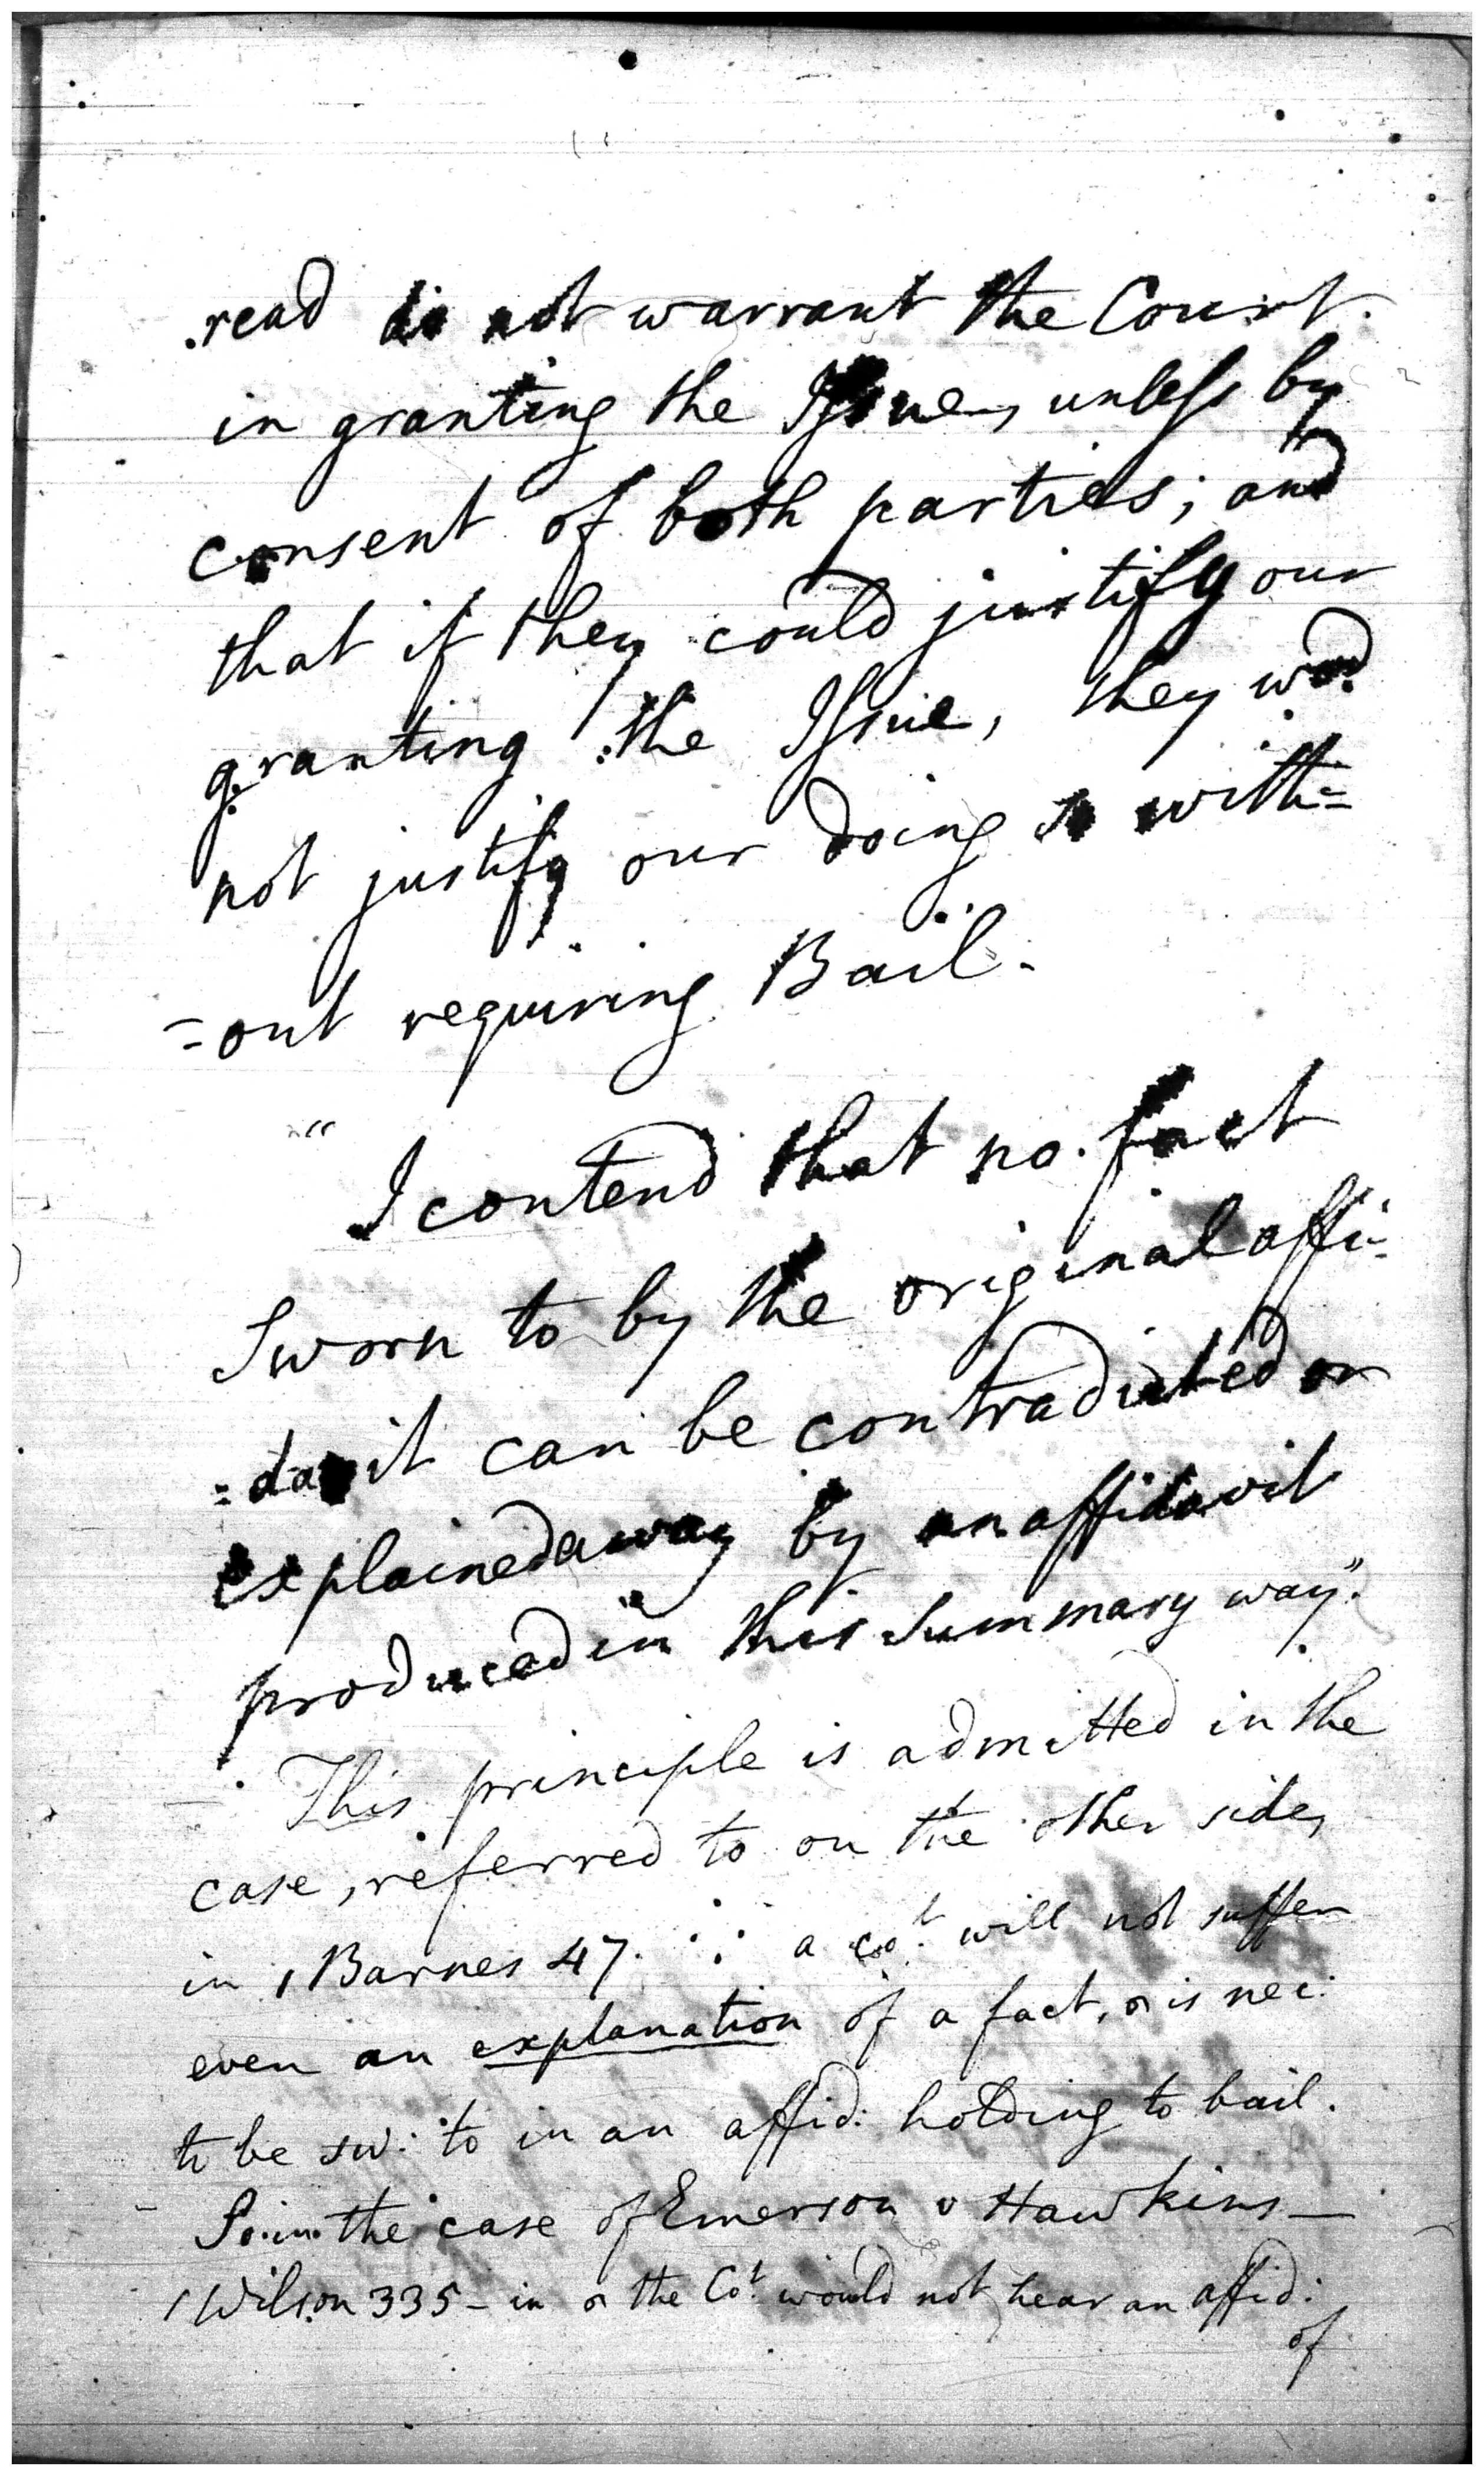 read do not warrant the Court
in granting the Issue, unless by
consent of both parties; and
that if they could justify our
granting the Issue, they wod.
not justify our doing so with=
=out requiring Bail.
"I contend that no fact
Sworn to by the original affi=
=davit can be contradicted or
explained away by an affidavit
produced in this Summary way".
This principle is admitted in the
case, referred to on the other side,
in 1 Barnes 47. ∴ a cot. will not suffer
even an explanation of a fact, is nec:
to be sw: to in an affid: holding to bail.
So in the case of Emerson v Hawkins —
1 Wilson 335 – in the Cot. would not hear an affid:
of